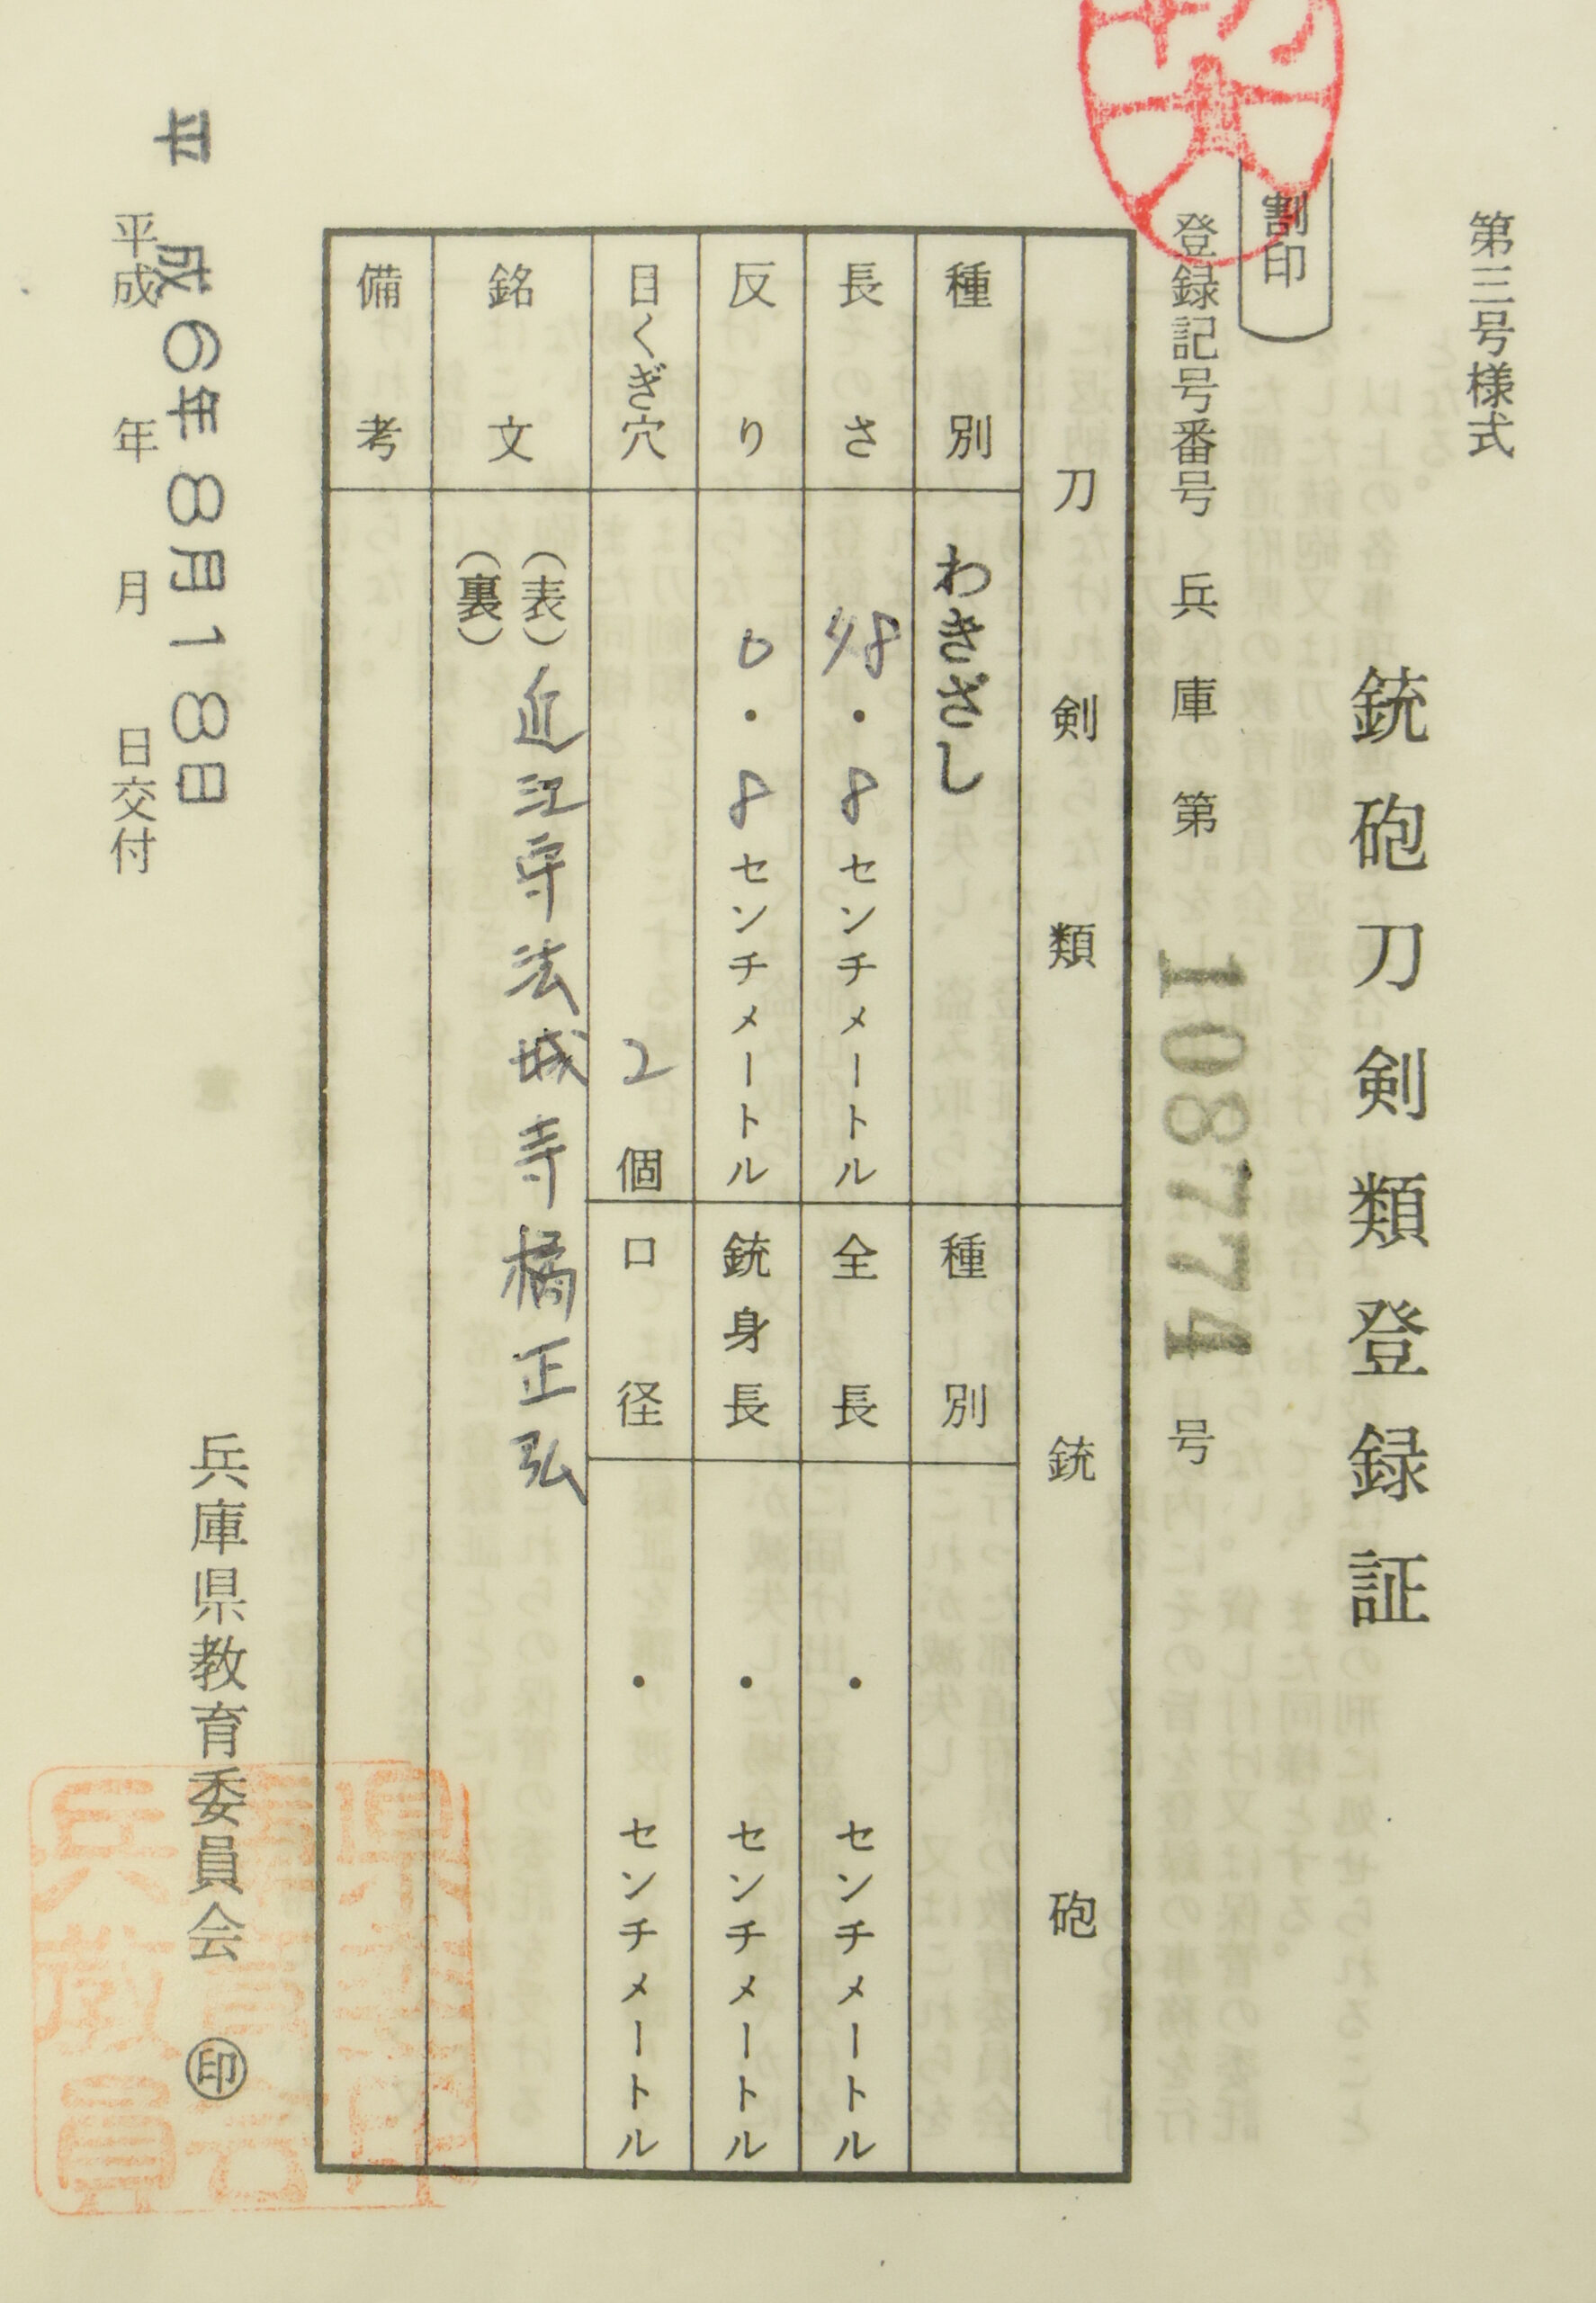 第三号様式
銃砲刀剣類登録証
割印
登録記号番号 兵庫第 108774 号
刀剣類
銃砲
種別 わきざし
種別
長さ 48・8センチメートル
全長 ・ センチメートル
反り 0・8センチメートル
銃身長 ・ センチメートル
目くぎ穴 2個
口径 ・ センチメートル
銘文 (表)近江守法城寺橘正弘
(裏)
備考
平成6年8月18日
平成 年 月 日交付
兵庫県教育委員会 ㊞